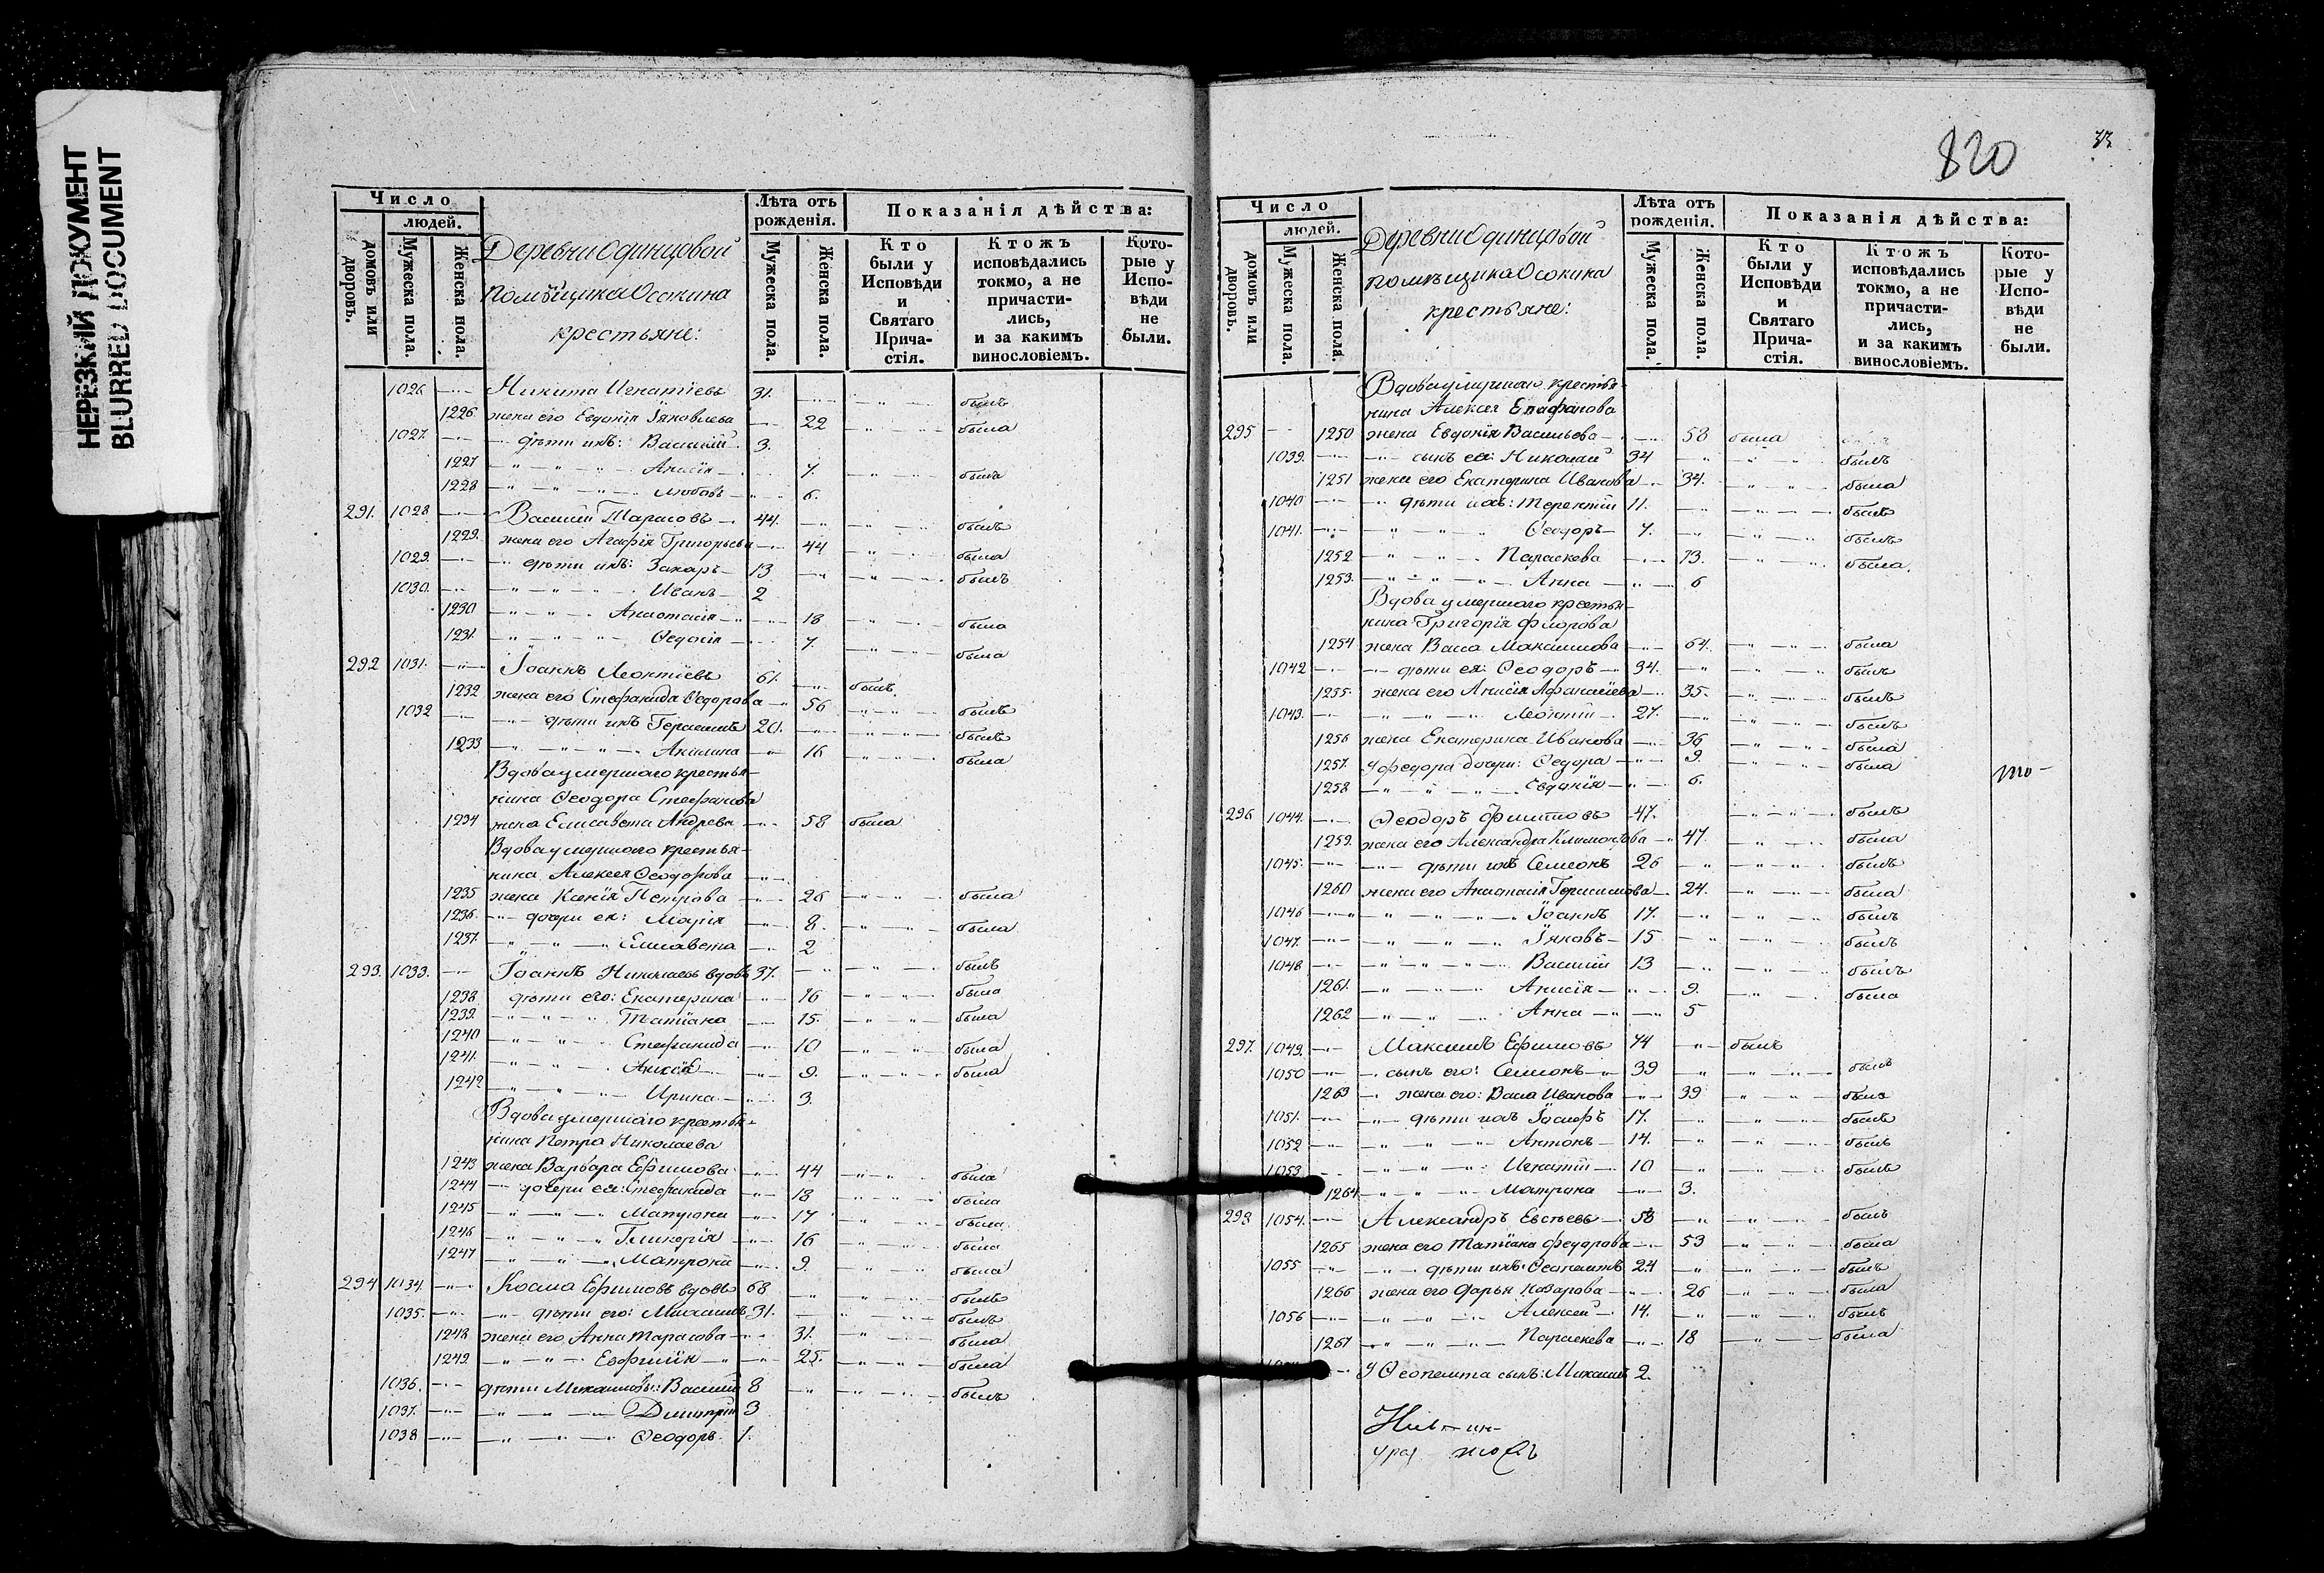 НЕРЕЗКИЙ ДОКУМЕНТ
BLURRED DOCUMENT
Число
людей.
домовъ или дворовъ.
Мужеска пола.
Женска пола.
Деревни Одинцовой
помѣщика Осокина
крестьяне:
Лѣта отъ рожденія.
Мужеска пола.
Женска пола.
Показанія дѣйства:
Кто были у Исповѣди и Святаго Прича-стія.
Ктожъ исповѣдались токмо, а не причасти-лись, и за какимъ винословіемъ.
Кото-рые у Испо-вѣди не были.
1026 Никита Игнатіевъ 31. былъ
1226 жена его Евдокія Іяковлева 22 была
1027. дѣти ихъ: Василій 3.
1227 Анисія 7. была
1228 Любовь 6.
291. 1028 Василій Тарасовъ 44. былъ
1229. жена его Агафія Григорьева 44 была
1029. дѣти ихъ: Захаръ 13 былъ
1030. Иванъ 2
1230 Анастасія 18 была
1231. Ѳедосія 7. была
292 1031. Іоаннъ Леонтіевъ 61. былъ
1232 жена его Стефанида Ѳедорова 56 былъ
1032 дѣти ихъ Герасимъ 20. былъ
1233 Акилина 16 была
Вдова умершаго крестья-
нина Ѳеодора Стефанова
1234 жена Елисавета Андрева 58 была
Вдова умершаго крестья-
нина Алексея Ѳеодорова
1235 жена Ксенія Петрова 26 была
1236. дочери ея: Марія 8. была
1237. Елисавета 2
293. 1033. Іоаннъ Николаевъ вдовъ 37. былъ
1238. дѣти его: Екатерина 16 была
1239. Татіана 15. была
1240 Стефанида 10 была
1241. Анисія 9. была
1242 Ирина 3.
Вдова умершаго крестья-
нина Петра Николаева
1243 жена Варвара Ефимова 44 была
1244 дочери ея: Стефанида 18 была
1245 Матрона 17 была
1246 Гликерія 16 была
1247 Матрона 9. была
294 1034. Косма Ефимовъ вдовъ 68 былъ
1035. дѣти его: Михаилъ 31. былъ
1248 жена его Анна Тарасова 31. была
1249. Евфимія 25. была
1036. дѣти Михаиловы: Василій 8 былъ
1037. Дмитрій 3
1038 Ѳеодоръ 1.
820
Число
людей.
домовъ или дворовъ.
Мужеска пола.
Женска пола.
Деревни Одинцовой
помѣщика Осокина
крестьяне:
Лѣта отъ рожденія.
Мужеска пола.
Женска пола.
Показанія дѣйства:
Кто были у Исповѣди и Святаго Прича-стія.
Ктожъ исповѣдались токмо, а не причасти-лись, и за какимъ винословіемъ.
Кото-рые у Испо-вѣди не были.
Вдова умершаго крестья-
нина Алексея Епифанова
295 1250 жена Евдокія Васильева 58 была
1039. сынъ ея: Николай 34 былъ
1251 жена его Екатерина Иванова 34. была
1040 дѣти ихъ: Терентій 11. былъ
1041. Ѳеодоръ 7. былъ
1252 Параскева 13. была
1253. Анна 6
Вдова умершаго крестья-
нина Григорія Флорова
1254 жена Васса Максимова 64. была
1042 дѣти ея: Ѳеодоръ 34. былъ
1255. жена его Анисія Афанасіева 35. былъ
1043. Леонтій 27. былъ
1256 жена Екатерина Иванова 36 была
1257. У Федора дочери: Ѳедора 9. была
1258 Евдокія 6.
296 1044. Ѳеодоръ Филиповъ 47. былъ
1259. жена его Александра Климонтова 47. была
1045. дѣти ихъ Семеонъ 26 былъ
1260 жена его Анастасія Герасимова 24. была
1046 Іоаннъ 17. былъ
1047. Іяковъ 15 былъ
1048 Василій 13 былъ
1261. Анисія 9. была
1262 Анна 5
297. 1049. Максимъ Ефимовъ 74 былъ
1050 сынъ его: Семионъ 39 былъ
1263 жена его: Васса Иванова 39 была
1051. дѣти ихъ Іосифъ 17. былъ
1052 Антонъ 14. былъ
1053 Игнатій 10 былъ
1264 Матрона 3.
298 1054. Александръ Евсѣевъ 58 былъ
1265 жена его Татіана Федорова 53 была
1055 дѣти ихъ: Ѳеопемптъ 24 былъ
1266 жена его Дарья Назарова 26 была
1056 Алексей 14. былъ
1267 Параскева 18 была
У Ѳеопемпта сынъ: Михаилъ 2.